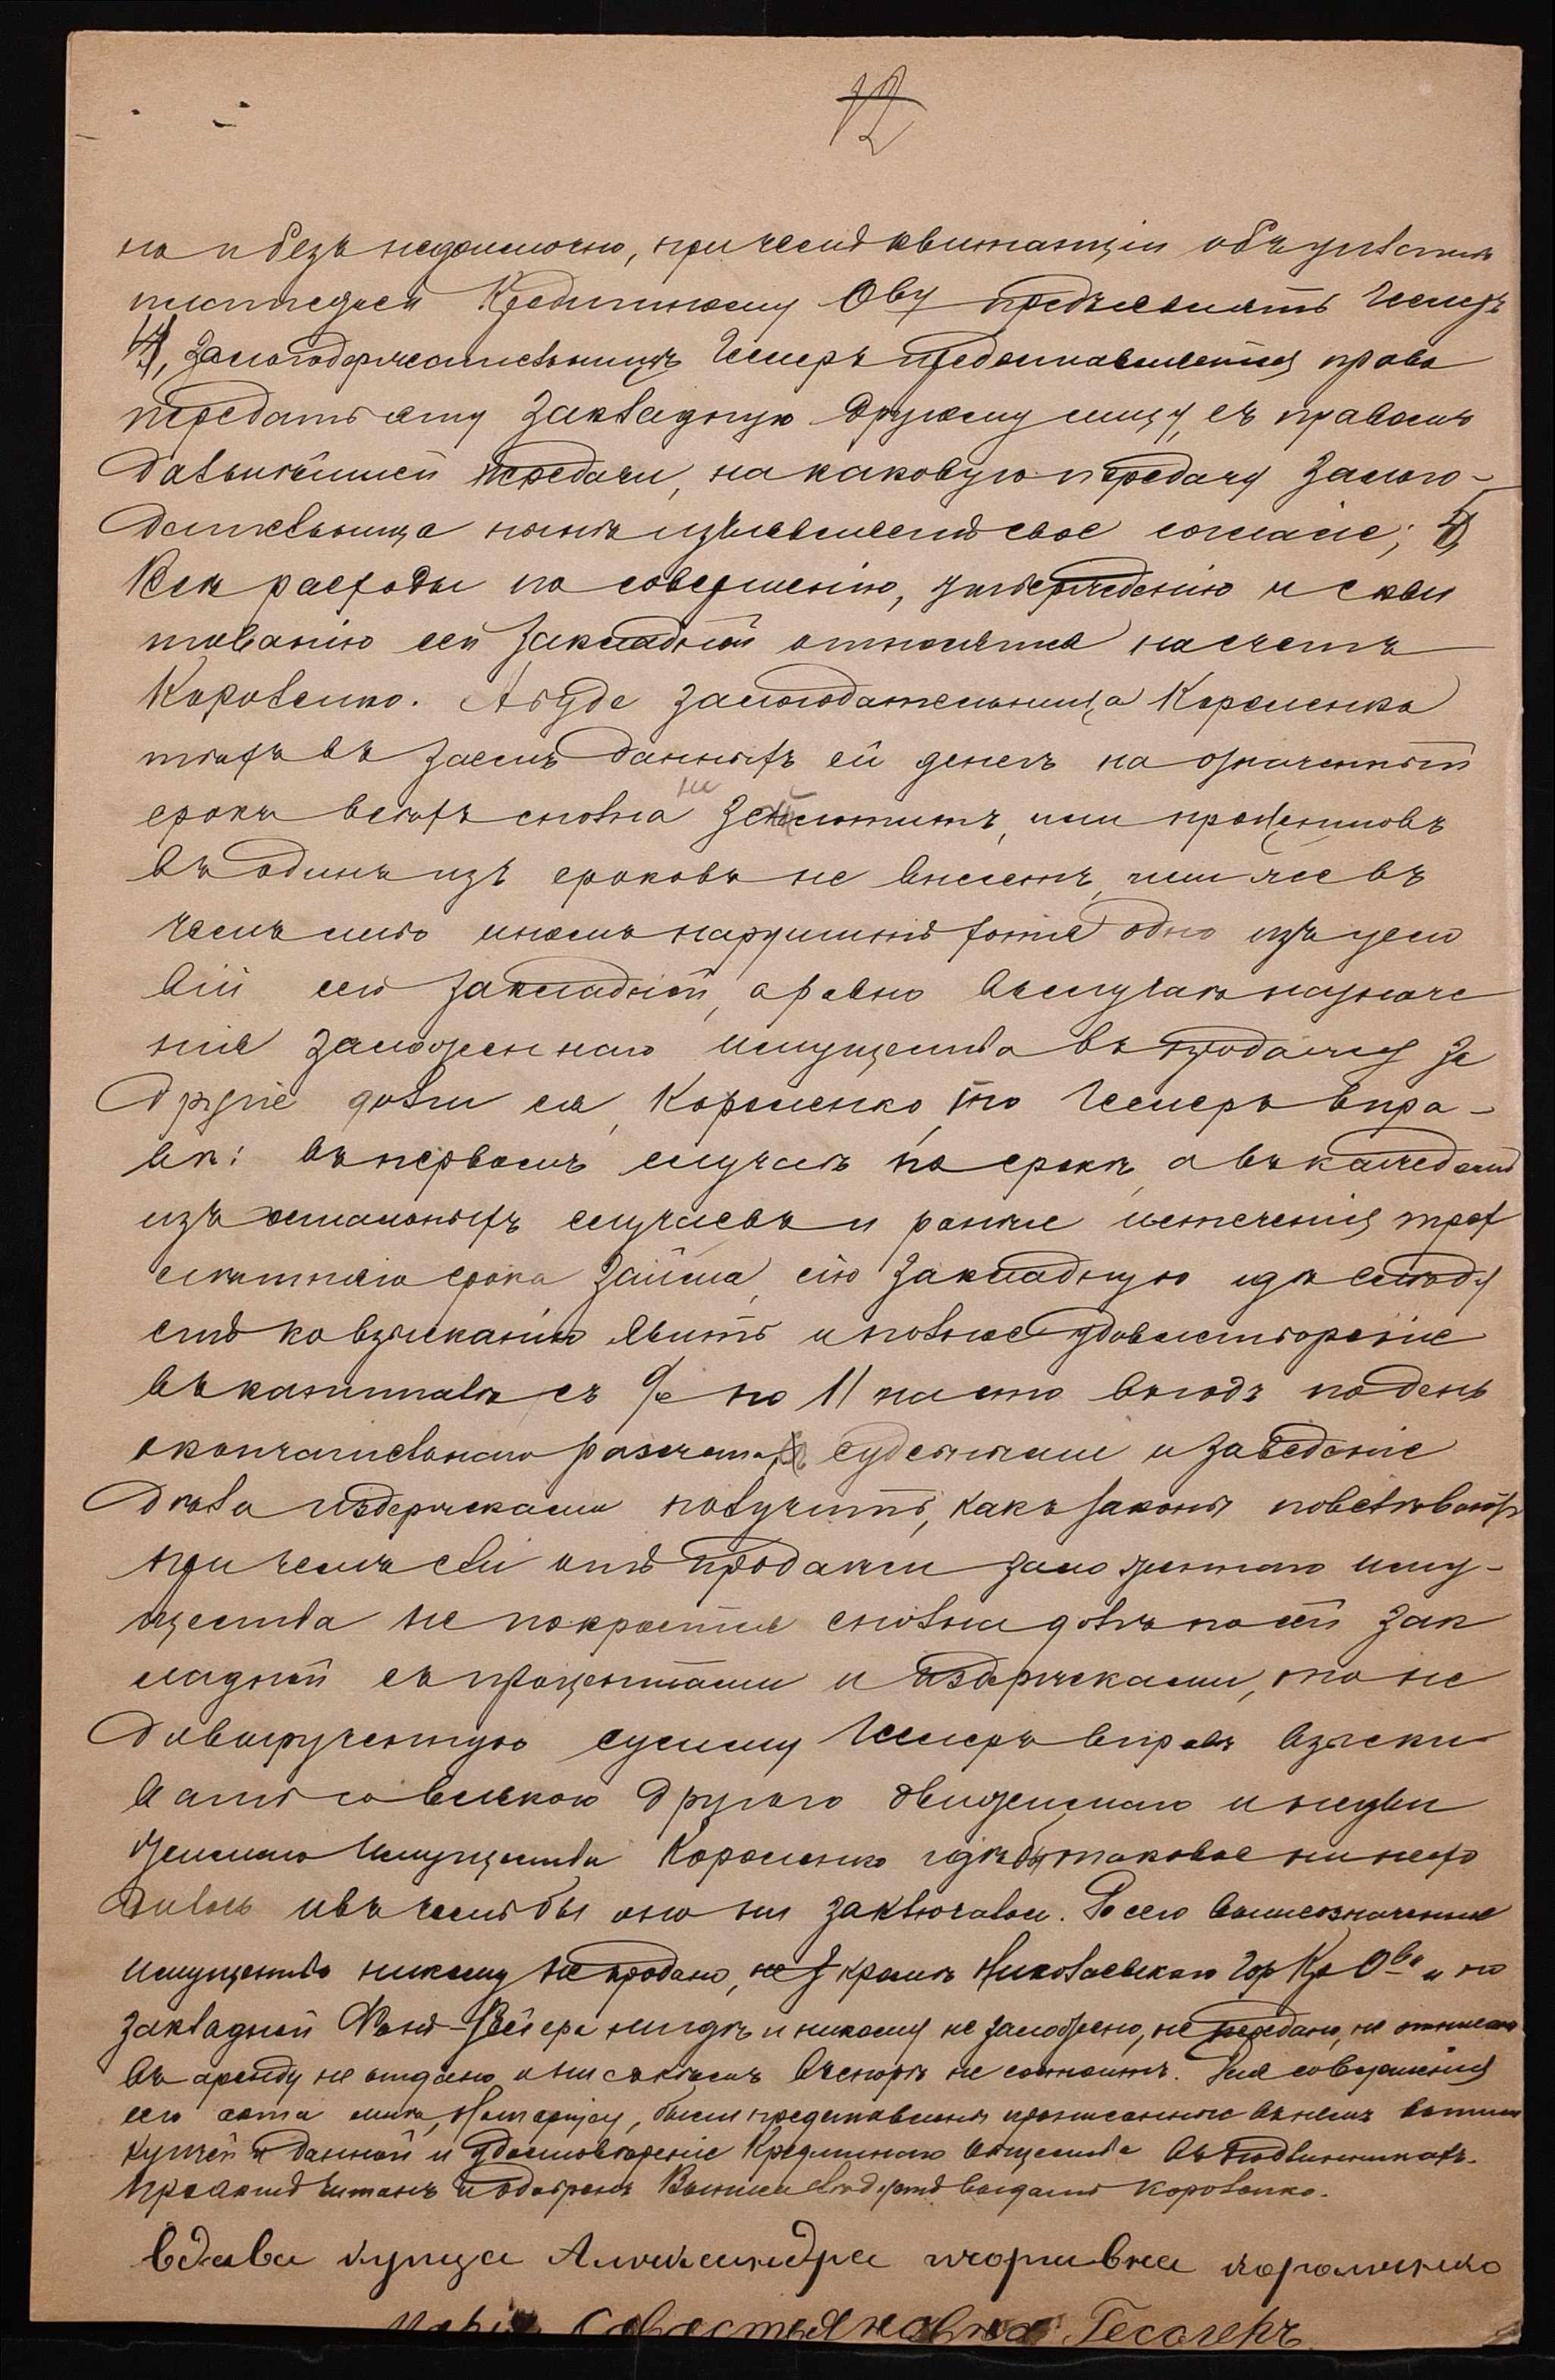 12
но и безъ недоимочно, при чемъ квитанціи объ уплатѣ
платежей Кредитному Ову предъявлять Гесмеръ
4), Залогодержательницѣ Гесмеръ предоставляется право
передать эту закладную другому лицу, съ правомъ
дальнѣйшей передачи, на каковую передачу залого-
дательница нынѣ изъявляетъ свое согласіе; 5)
Всѣ расходы по совершенію, утвержденію и скви
тованію сей закладной относятся на счетъ
Короленко. А буде залогодательница Короленко
тѣхъ въ заемъ данныхъ ей денегъ на означенный
срокъ всѣхъ сполна не заплатитъ, или процентовъ
въ одинъ изъ сроковъ не внесетъ, или же въ
чемъ либо иномъ нарушитъ хотя одно изъ усло
вій сей закладной, а равно въ случаѣ назначе
нія заложеннаго имущества въ продажу за
другіе долги ея, Короленко, то Гесмеръ впра-
вѣ: въ первомъ случаѣ по срокѣ, а въ каждомъ
изъ остальныхъ случаевъ и ранѣе истеченія трех
лѣтняго срока займа, сію закладную гдѣ слѣду
етъ ко взысканію явить и полное удовлетвореніе
въ капиталѣ съ % по 11 на сто въ годъ по день
окончательнаго разсчета, судебными и за веденіе
дѣла издержками получить, какъ законы повелѣваютъ
при чемъ если отъ продажи заложеннаго иму-
щества не покроется сполна долгъ по сей зак
ладной съ процентами и издержками, то не
довырученную сумму Гесмеръ вправѣ взыски
вать со всякого другого движимаго и недви
жимаго имущества Короленко гдѣ бы таковое ни нахо
дилось и въ чемъ бы оно ни заключалось. До сего вышеозначенное
имущество никому не продано, кромѣ Николаевскаго Гор Кр Ова и по
закладной Фонъ-Вейера нигдѣ и никому не заложено, не передано, не отписано
въ аренду не отдано и ни съ кѣмъ въ спорѣ не состоитъ. Для совершенія
сего акта мнѣ, Нотаріусу, были представлены прописанные въ немъ
купчей и данной и удостовѣреніе Кредитнаго Общества въ подлинникахъ.
Проектъ читанъ и одобренъ Выпись слѣдуетъ выдать Короленко.
вдова купца Александра Короленко
Марія Севастьяновна Гесмеръ